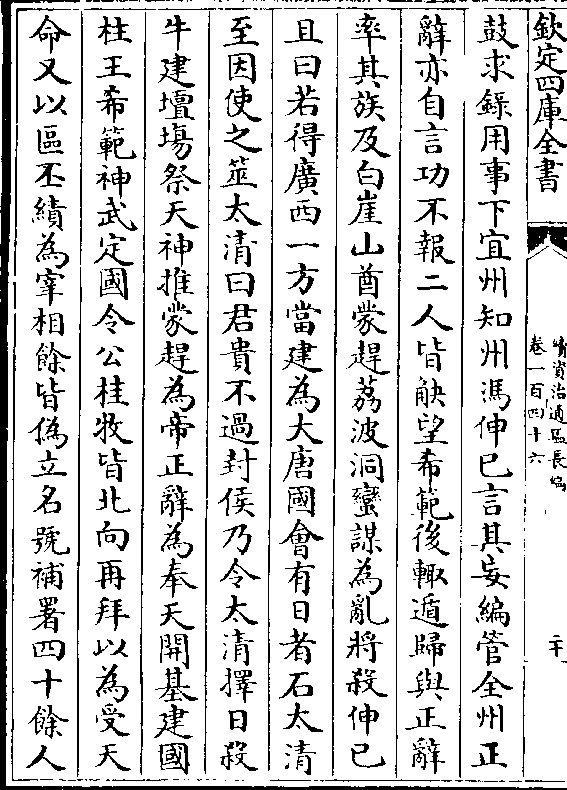 欽定四庫全書
續資治通鑑長編
卷一百四十六
二十
鼓求錄用事下宜州知州馮伸已言其妄編管全州正
辭亦自言功不報二人皆觖望希範後輙遁歸與正辭
率其族及白崖山酋蒙趕荔波洞蠻謀為亂將殺伸已
且曰若得廣西一方當建為大唐國會有日者石太清
至因使之筮太清曰君貴不過封侯乃令太清擇日殺
牛建壇塲祭天神推蒙趕為帝正辭為奉天開基建國
柱王希範神武定國令公桂牧皆北向再拜以為受天
命又以區丕績為宰相餘皆偽立名號補署四十餘人